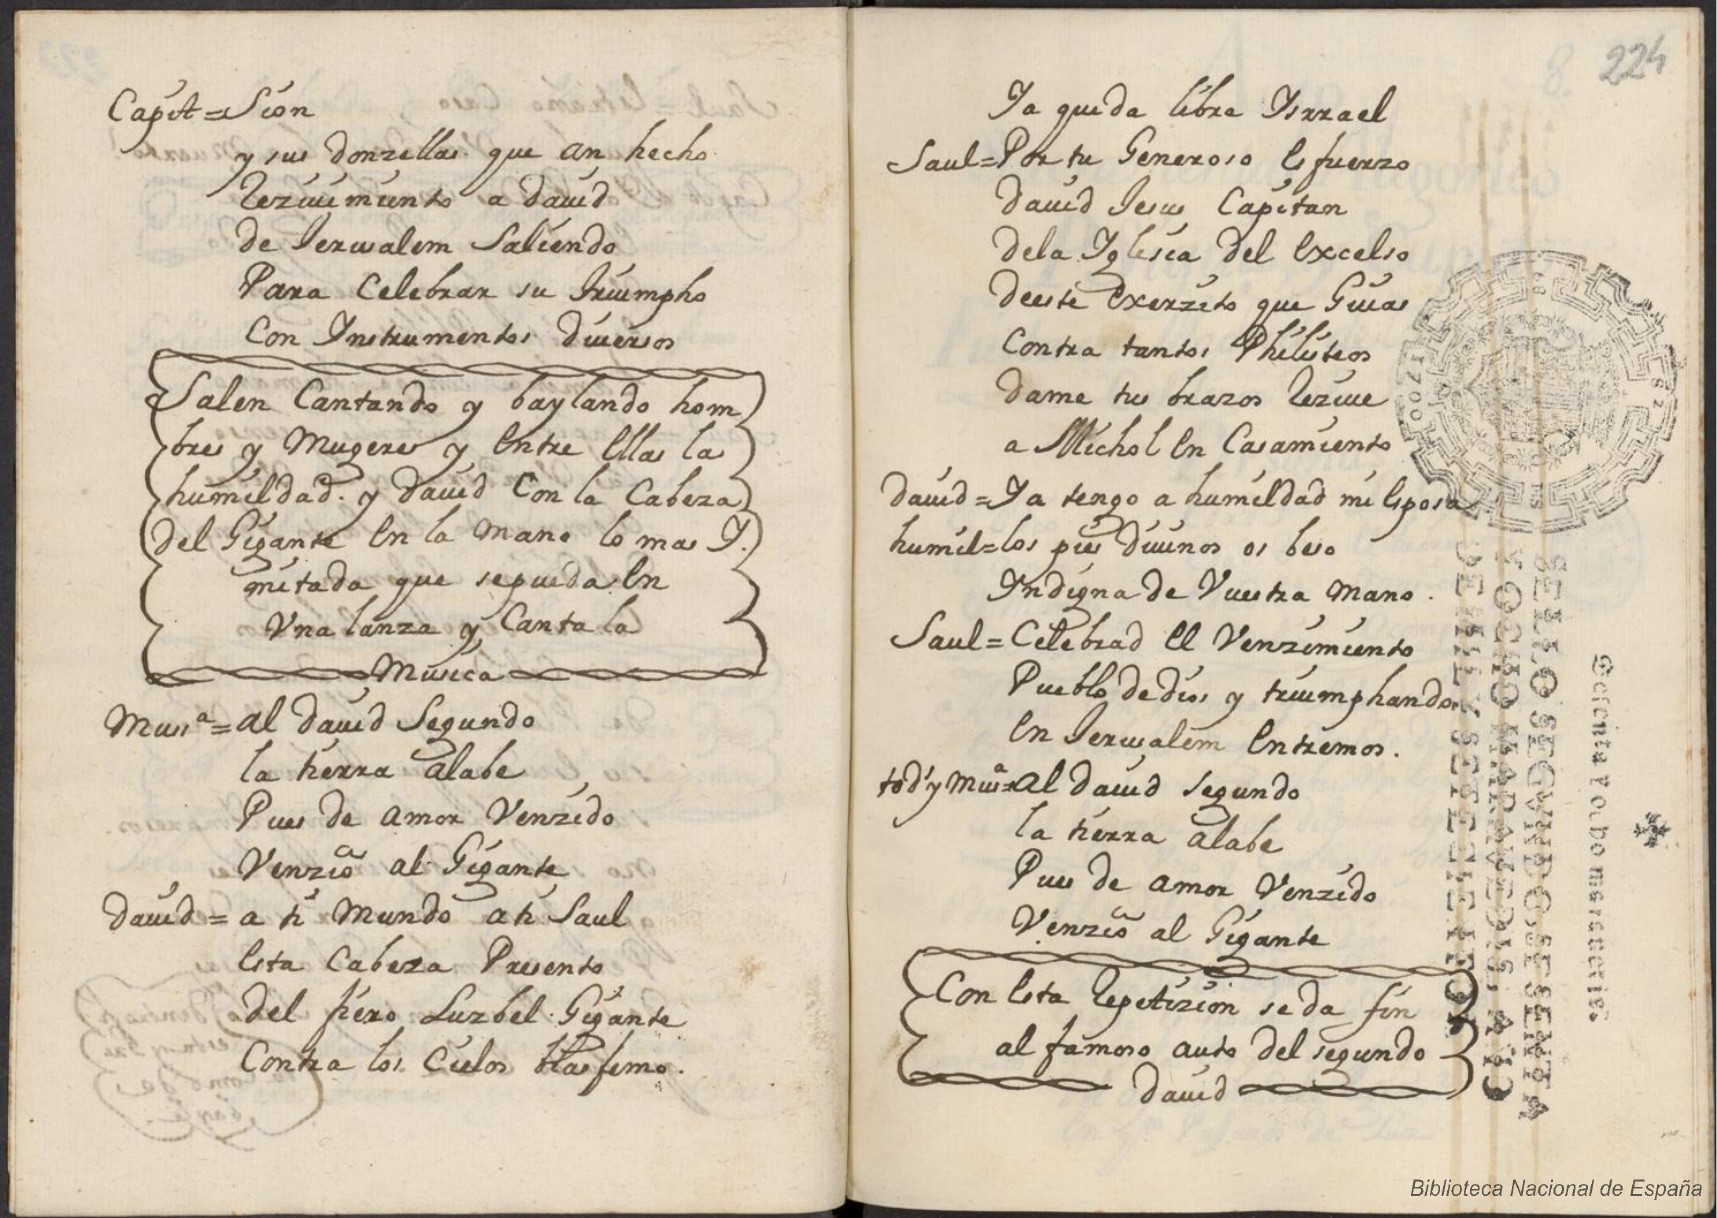 Capit = Sion
y sus donzellas que an hecho
Rezivimiento a david
de Jerusalem saliendo
Para Celebrar su triumpho
Con Ynstrumentos diversos
Salen Cantando y baylando hom
bres y Mugeres y Entre Ellas la
humildad. y david Con la Cabeza
del Gigante En la mano lo mas Y.
mitada que se pueda En
Vna lanza y Canta la
Musica
Musª = al david Segundo
la tierra alabe
Pues de amor Venzido
Venzio al Gigante
david = a ti Mundo a ti Saul
Esta Cabeza Presento
del fiero Luzbel Gigante
Contra los Cielos blasfemo.
224
Ya queda libre Ysrrael
Saul = Por tu Generoso Esfuerzo
david Jesus Capitan
dela Yglesia del Excelso
deeste Exerzito que Guias
Contra tantos Philisteos
dame tus brazos Rezive
a Michol En Casamiento
david = Ya tengo a humildad mi Esposa
humil = los pies divinos os beso
Yndigna de Vuestra mano.
Saul = Celebrad El Venzimiento
Pueblo de dios y triumphando
En Jerusalem Entremos.
tods y Musª = al david segundo
la tierra alabe
Pues de amor Venzido
Venzio al Gigante
Con Esta Repetizion se da fin
al famoso auto del segundo
david
SELLO SEGVNDO, SESENTA
Y OCHO MARAVEDIS, AÑO
DE MIL Y SETECIENTOS
Sesenta y ocho maravedis.
Biblioteca Nacional de España